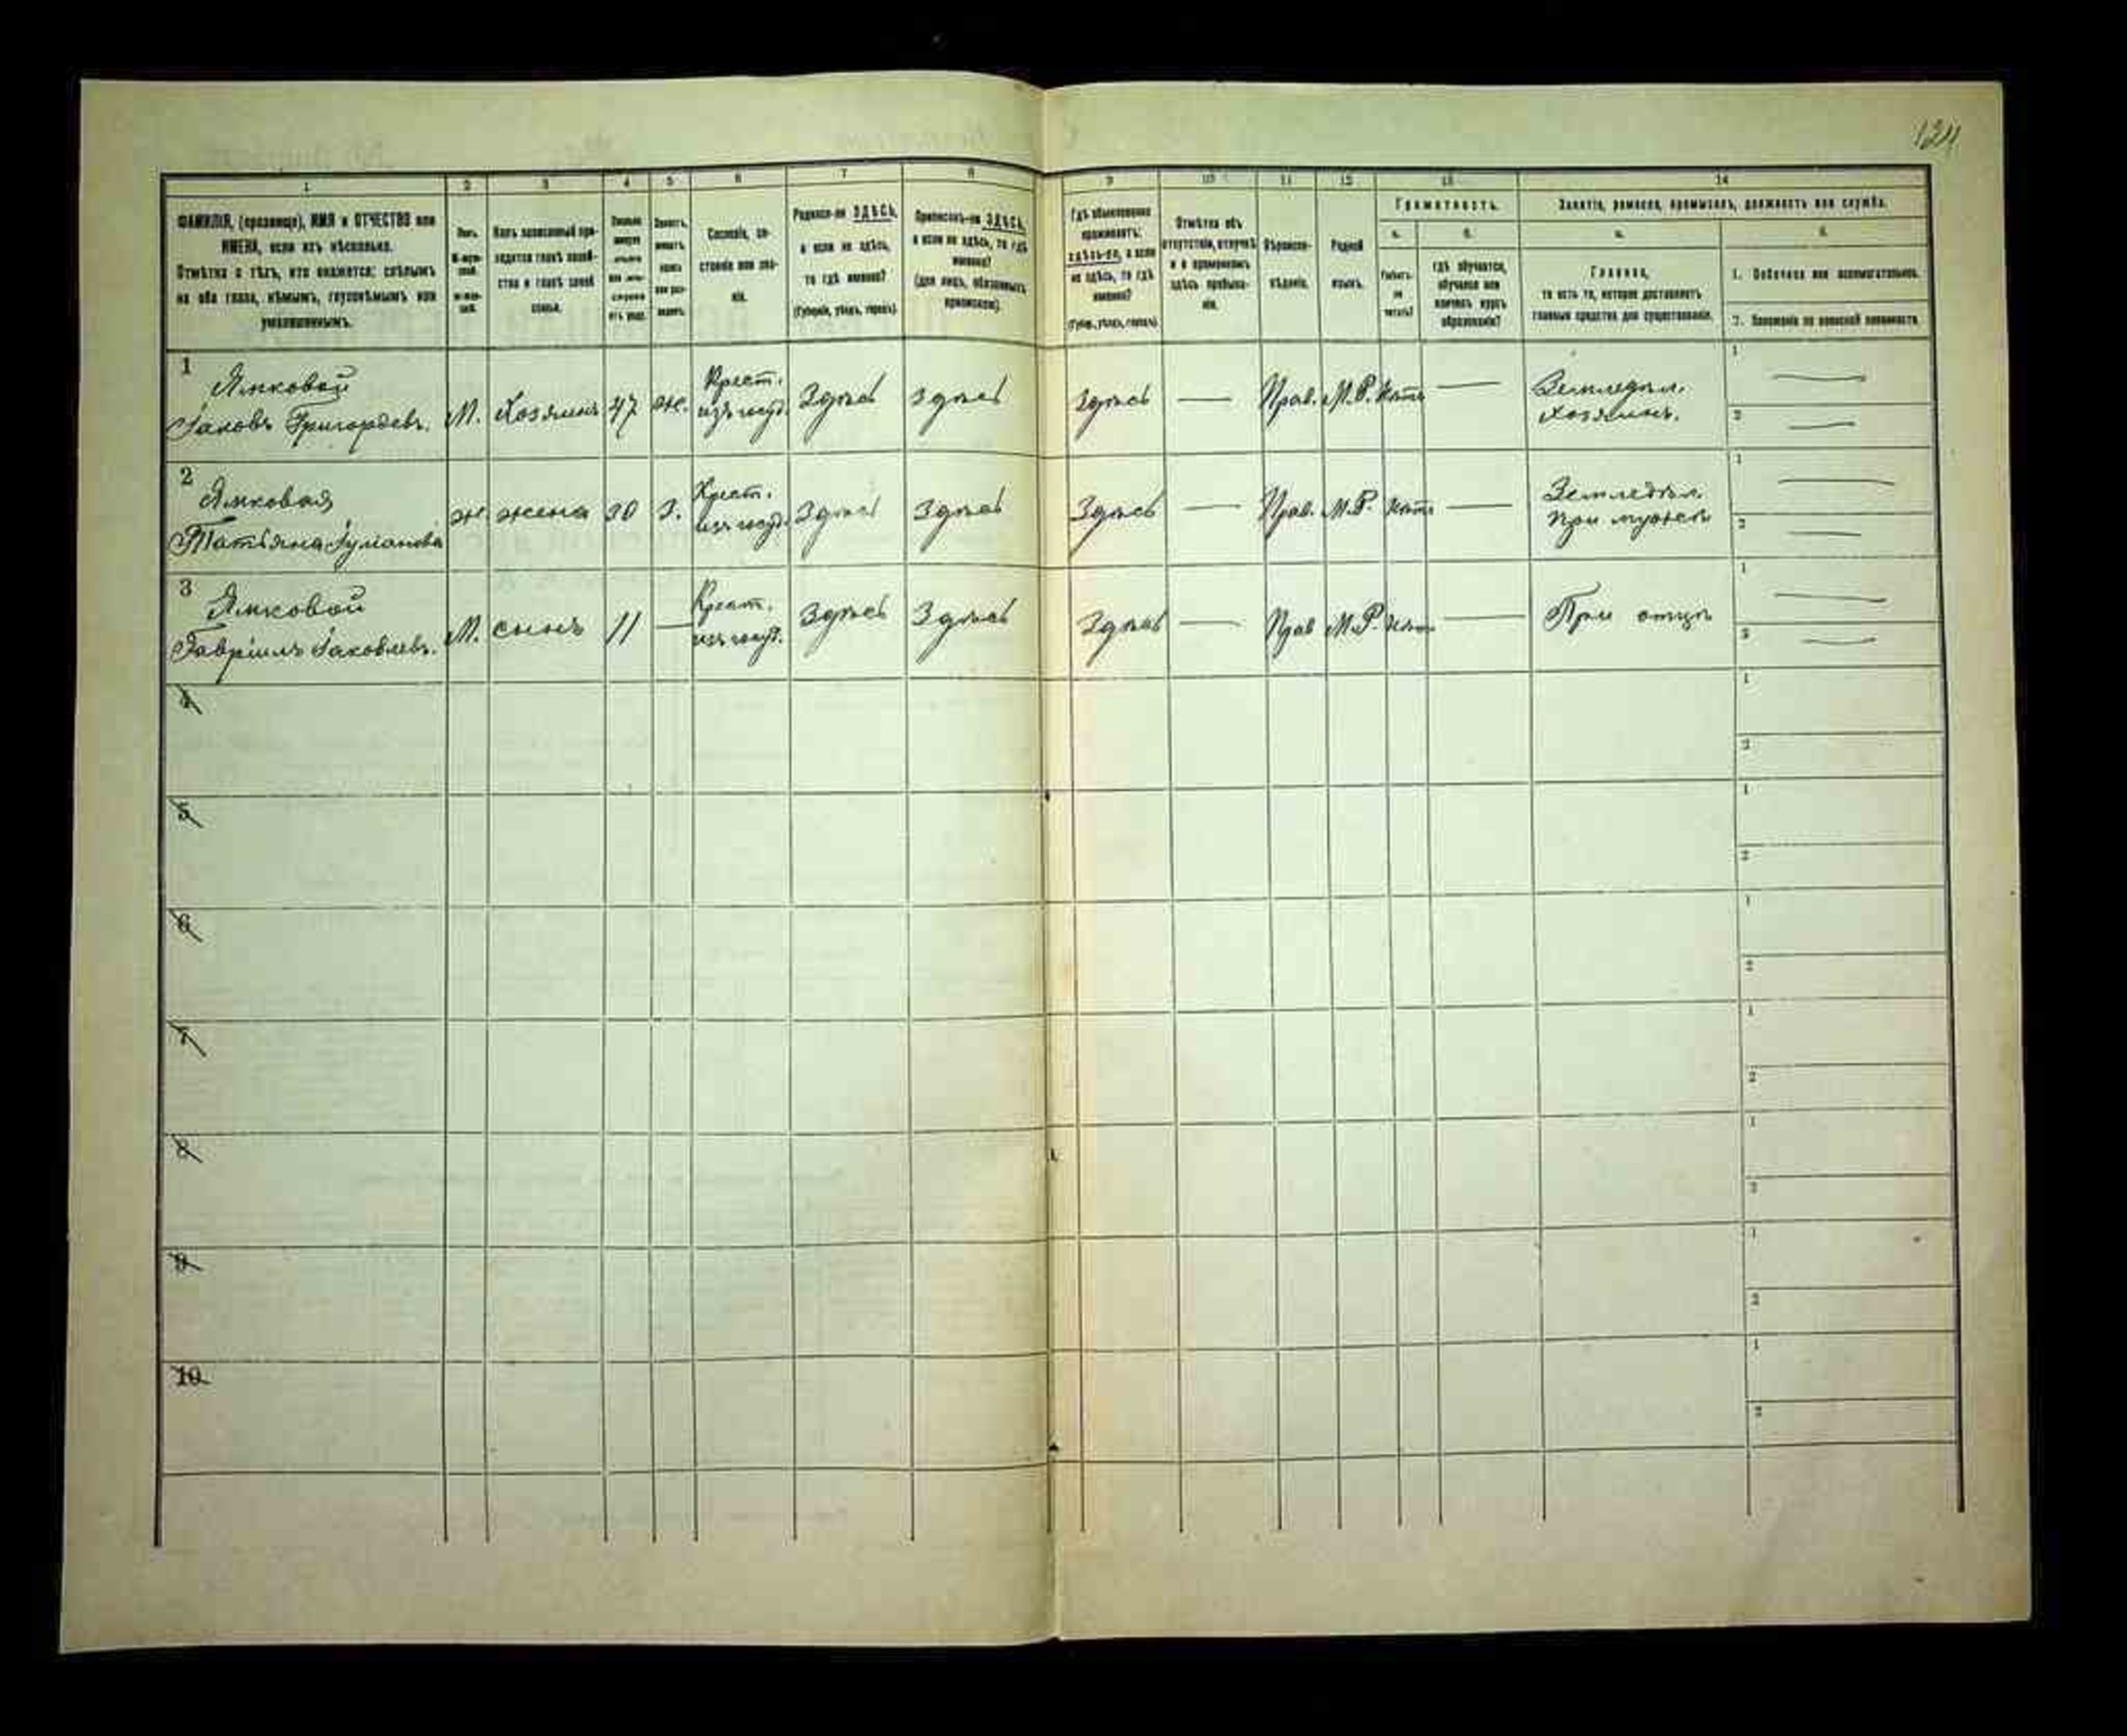 124
1 2 3 4 5 6 7 8 9 10 11 12 13 14
ФАМИЛІЯ, (прозвище), ИМЯ и ОТЧЕСТВО или
ИМЕНА, если ихъ нѣсколько.
Отмѣтка о тѣхъ, кто окажется: слѣпымъ
на оба глаза, нѣмымъ, глухонѣмымъ или
умалишеннымъ.
Полъ.
Какъ записанный при-
ходится главѣ хозяй-
ства и главѣ своей
семьи.
Сословіе, со-
стояніе или зва-
ніе.
Родился-ли ЗДѢСЬ,
а если не здѣсь,
то гдѣ именно?
(Губернія, уѣздъ, городъ).
Приписанъ-ли ЗДѢСЬ,
а если не здѣсь, то гдѣ
именно?
(для лицъ, обязанныхъ
припискою).
Гдѣ обыкновенно
проживаетъ:
здѣсь-ли, а если
не здѣсь, то гдѣ
именно?
(Губер., уѣздъ, городъ).
Отмѣтка объ
отсутствіи, отлучкѣ
и о временномъ
здѣсь пребыва-
ніи.
Вѣроиспо-
вѣданіе.
Родной
языкъ.
Грамотность.
а. б.
Умѣетъ-
ли
читать?
гдѣ обучается,
обучался или
кончилъ курсъ
образованія?
Занятіе, ремесло, промыселъ, должность или служба.
а. б.
Главное,
то есть то, которое доставляетъ
главныя средства для существованія.
1. Побочное или вспомогательное.
2. Положеніе по воинской повинности.
1 Ямковой
Іаковъ Григорьевъ. М. Хозяинъ 47 Ж. Крест. изъ госуд. Здѣсь Здѣсь Здѣсь — Прав. М.Р. нѣтъ — Земледѣл. Хозяинъ. 1 — 2 —
2 Ямковая
Татьяна ж жена 30 З. Крест. изъ госуд. Здѣсь Здѣсь Здѣсь — Прав. М.Р. нѣтъ — Земледѣл. При мужѣ 1 — 2 —
3 Ямковой
Гавріилъ Іаковлевъ. М. сынъ 11 — Крест. изъ госуд. Здѣсь Здѣсь Здѣсь — Прав М.Р. нѣтъ — При отцѣ 1 — 2 —
4 1 2
5 1 2
6 1 2
7 1 2
8 1 2
9 1 2
10 1 2